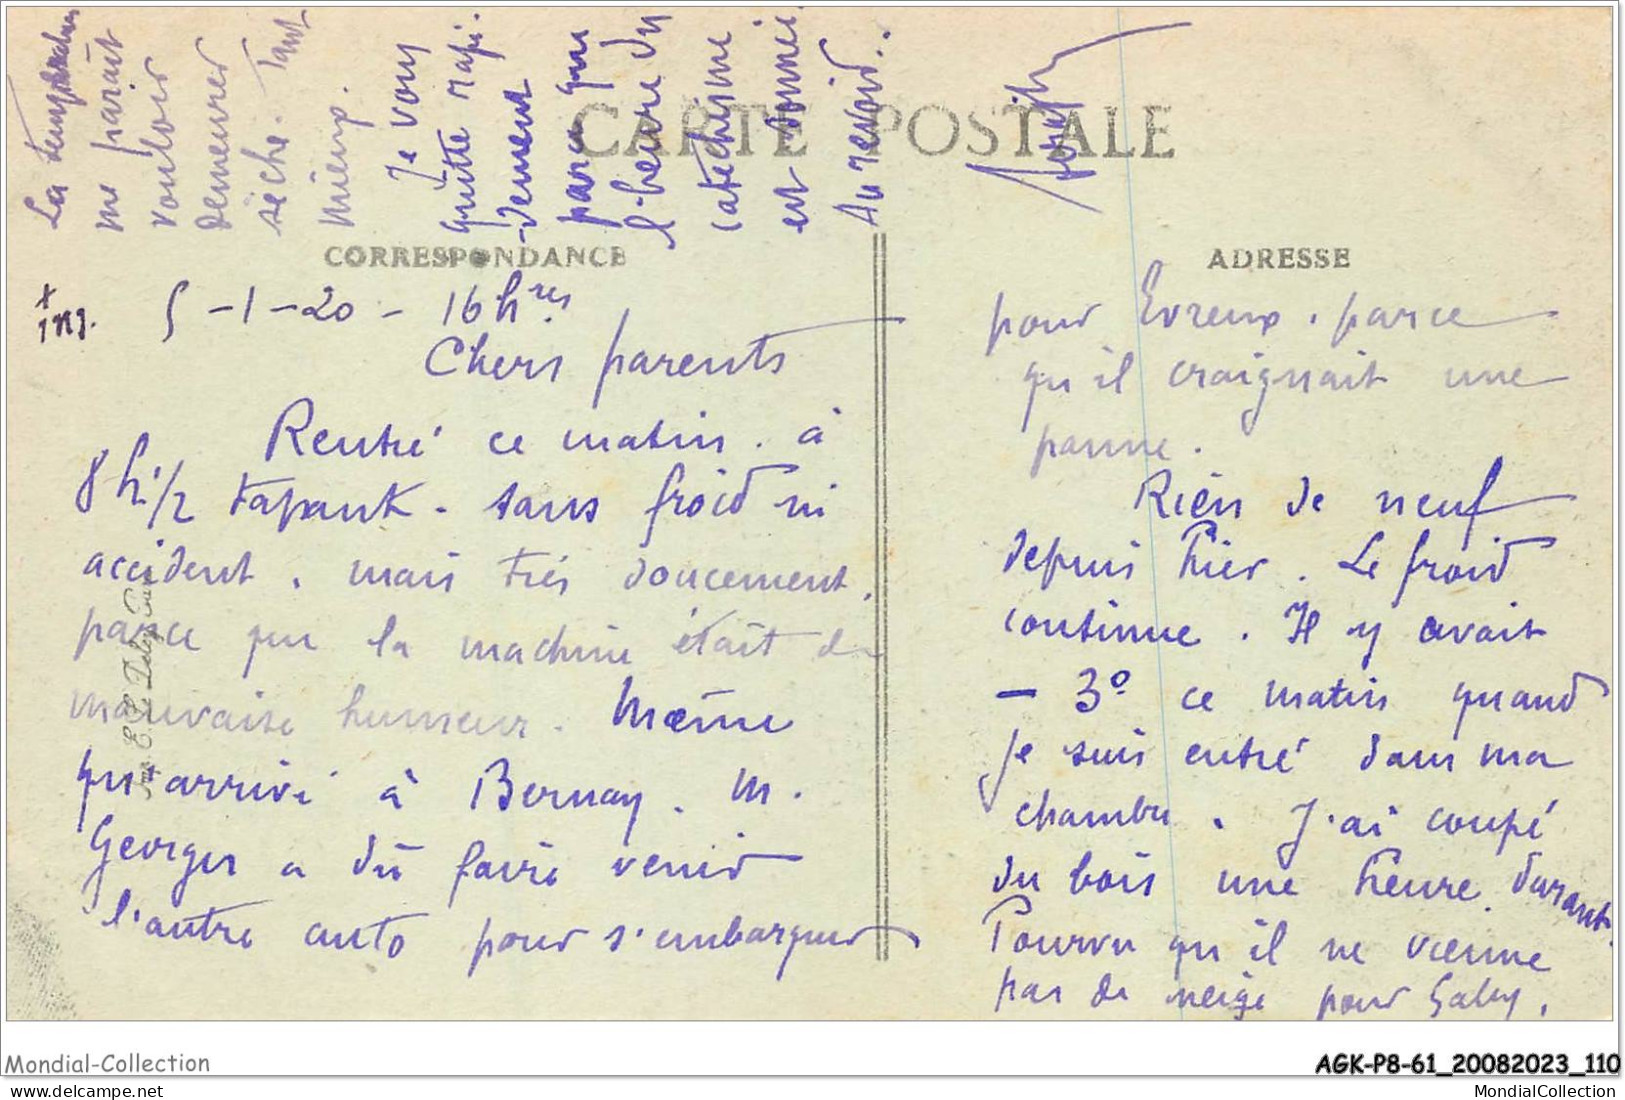 CARTE POSTALE
CORRESPONDANCE
ADRESSE
5-1-20 - 16 hres
Chers parents
Rentré ce matin. à
8h1/2 tapant. sans froid ni
accident, mais très doucement,
parce que la machine était de
mauvaise humeur. Même
qu'arrivé à Bernay. M.
Georges a dû faire venir
l'autre auto pour s'embarquer
pour Evreux. parce
qu'il craignait une
panne.
Rien de neuf
depuis hier. Le froid
continue. Il y avait
- 3° ce matin quand
je suis entré dans ma
chambre. J'ai coupé
du bois une heure durant.
Pourvu qu'il ne vienne
pas de neige pour Gaby.
La température
me parait
vouloir
demeurer
sèche. Tant
mieux.
Je vous
quitte rapi-
-dement
parce que
l'heure du
catéchisme
est sonnée.
Au revoir..
Joseph
Mondial-Collection
AGK-P8-61_20082023_110
MondialCollection